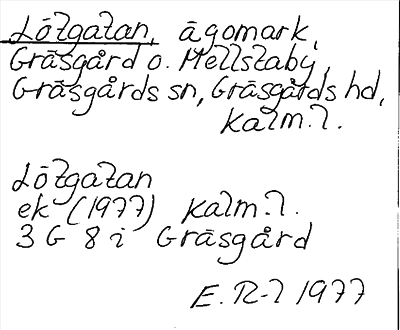 Lötgatan, ägomark,
Gräsgård o. Mellstaby,
Gräsgårds sn, Gräsgårds hd,
Kalm. l.
Lötgatan
ek (1977) Kalm. l.
3 G 8 i Gräsgård
E. R-l 1977